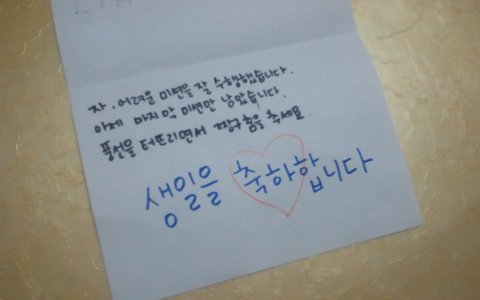 자, 어려운 미션을 잘 수행했습니다.
이제 마지막 미션만 남았습니다.
풍선을 터뜨리면서 짱구 춤을 추세요.
생일을 축하합니다